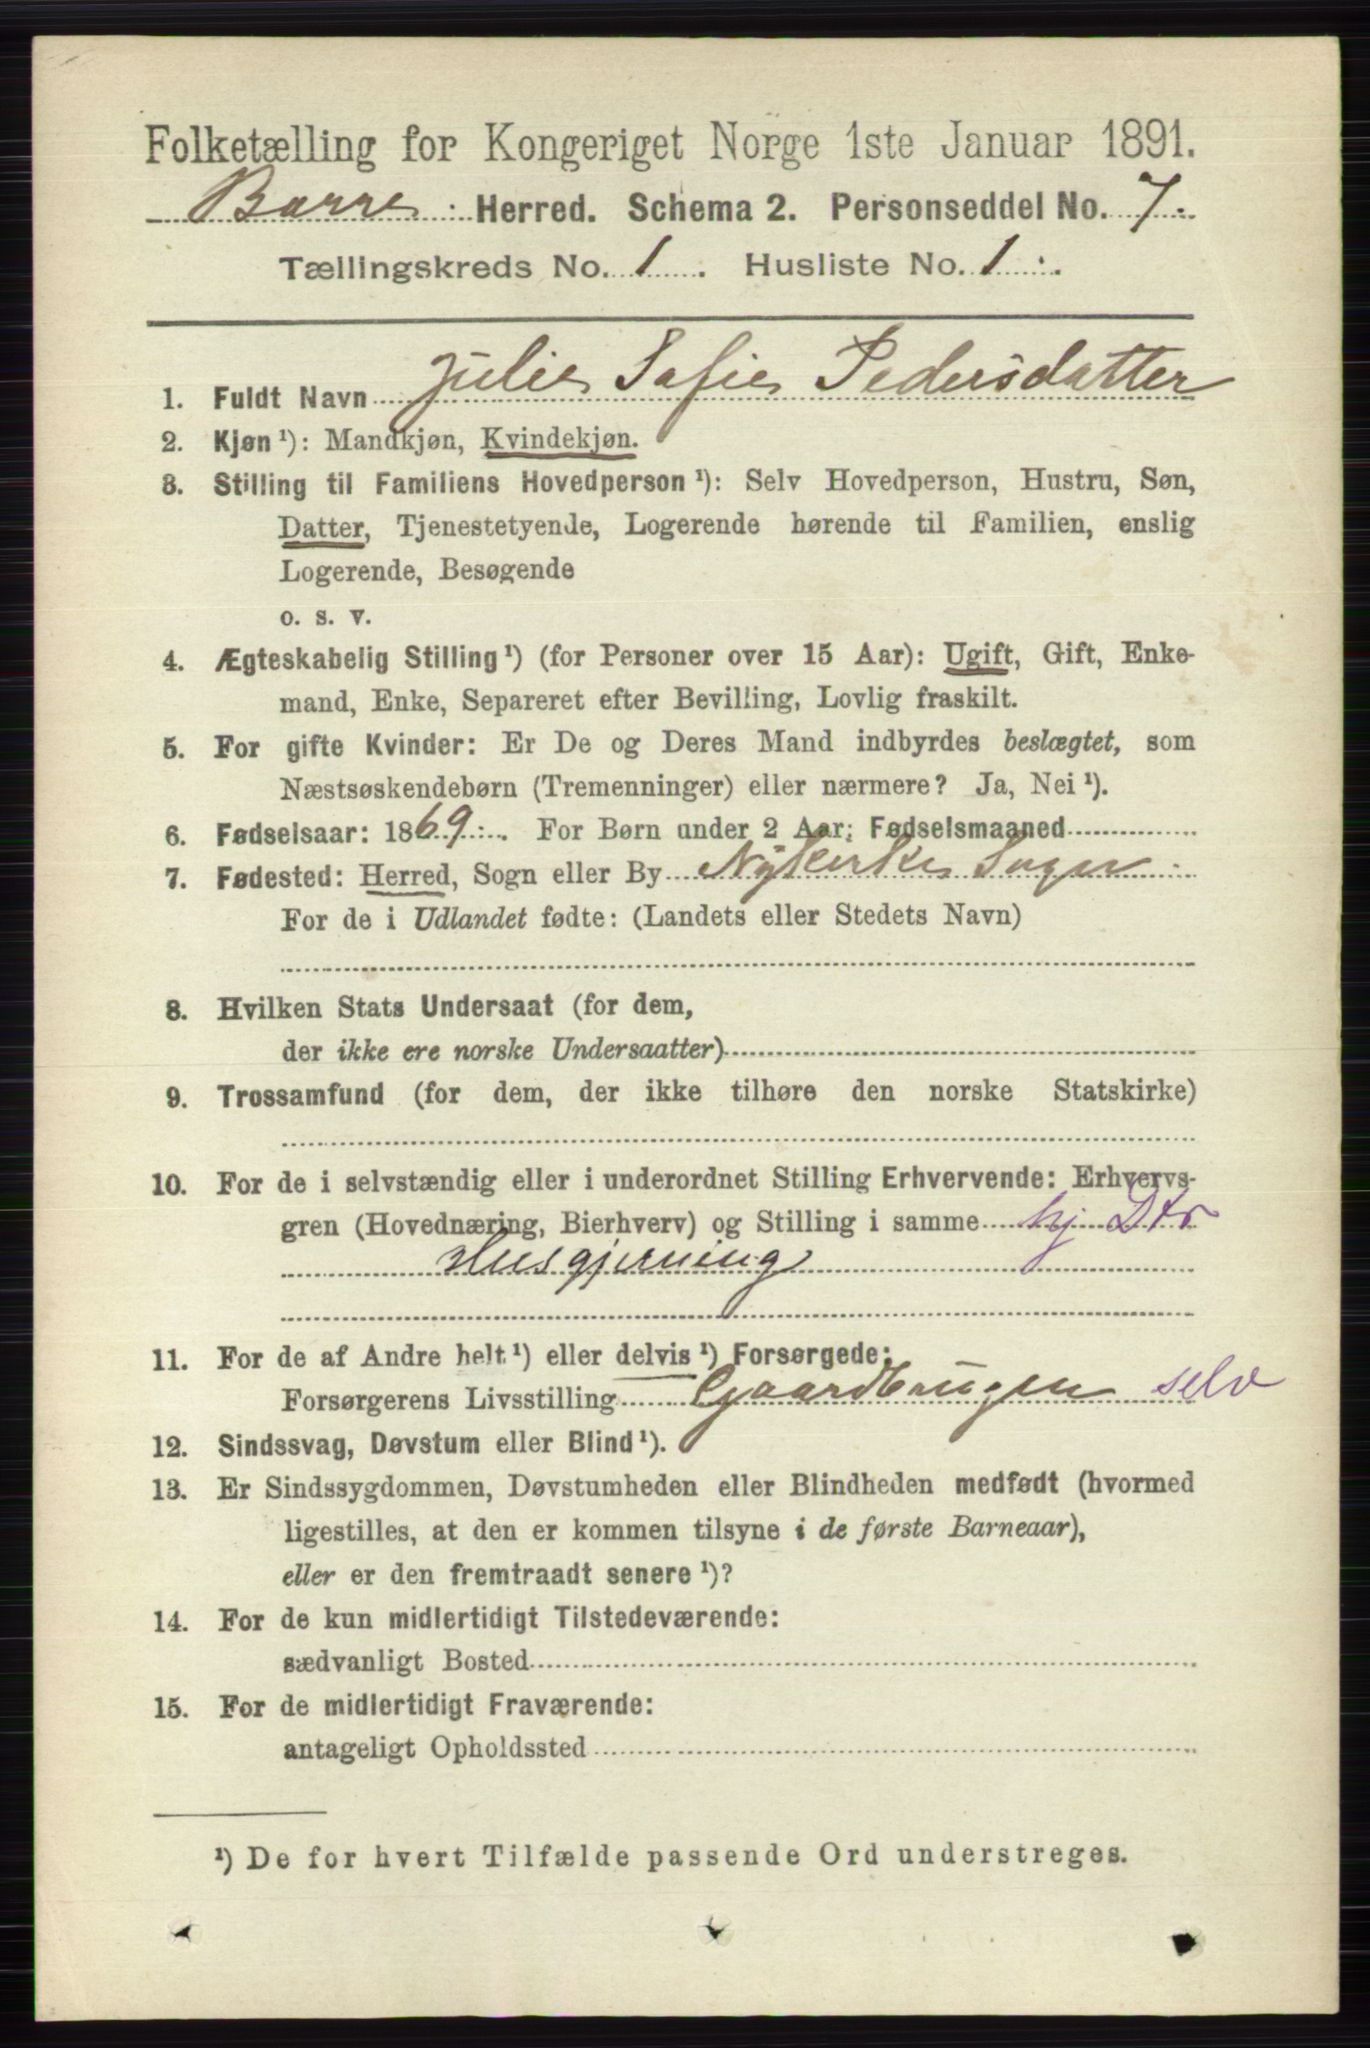 Folketælling for Kongeriget Norge 1ste Januar 1891.
Borre Herred. Schema 2. Personseddel No. 7.
Tællingskreds No. 1. Husliste No. 1.
1. Fuldt Navn Julie Sofie Pedersdatter
2. Kjøn ¹): Mandkjøn, Kvindekjøn.
3. Stilling til Familiens Hovedperson ¹): Selv Hovedperson, Hustru, Søn,
Datter, Tjenestetyende, Logerende hørende til Familien, enslig
Logerende, Besøgende
o. s. v.
4. Ægteskabelig Stilling ¹) (for Personer over 15 Aar): Ugift, Gift, Enke-
mand, Enke, Separeret efter Bevilling, Lovlig fraskilt.
5. For gifte Kvinder: Er De og Deres Mand indbyrdes beslægtet, som
Næstsøskendebørn (Tremenninger) eller nærmere? Ja, Nei ¹).
6. Fødselsaar: 1869. For Børn under 2 Aar: Fødselsmaaned
7. Fødested: Herred, Sogn eller By Nykirke Sogn
For de i Udlandet fødte: (Landets eller Stedets Navn)
8. Hvilken Stats Undersaat (for dem,
der ikke ere norske Undersaatter)
9. Trossamfund (for dem, der ikke tilhøre den norske Statskirke)
10. For de i selvstændig eller i underordnet Stilling Erhvervende: Erhvervs-
gren (Hovednæring, Bierhverv) og Stilling i samme hj. Dtr
Husgjerning
11. For de af Andre helt ¹) eller delvis ¹) Forsørgede:
Forsørgerens Livsstilling Gaardbrugen selv
12. Sindssvag, Døvstum eller Blind ¹).
13. Er Sindssygdommen, Døvstumheden eller Blindheden medfødt (hvormed
ligestilles, at den er kommen tilsyne i de første Barneaar),
eller er den fremtraadt senere ¹)?
14. For de kun midlertidigt Tilstedeværende:
sædvanligt Bosted
15. For de midlertidigt Fraværende:
antageligt Opholdssted
¹) De for hvert Tilfælde passende Ord understreges.